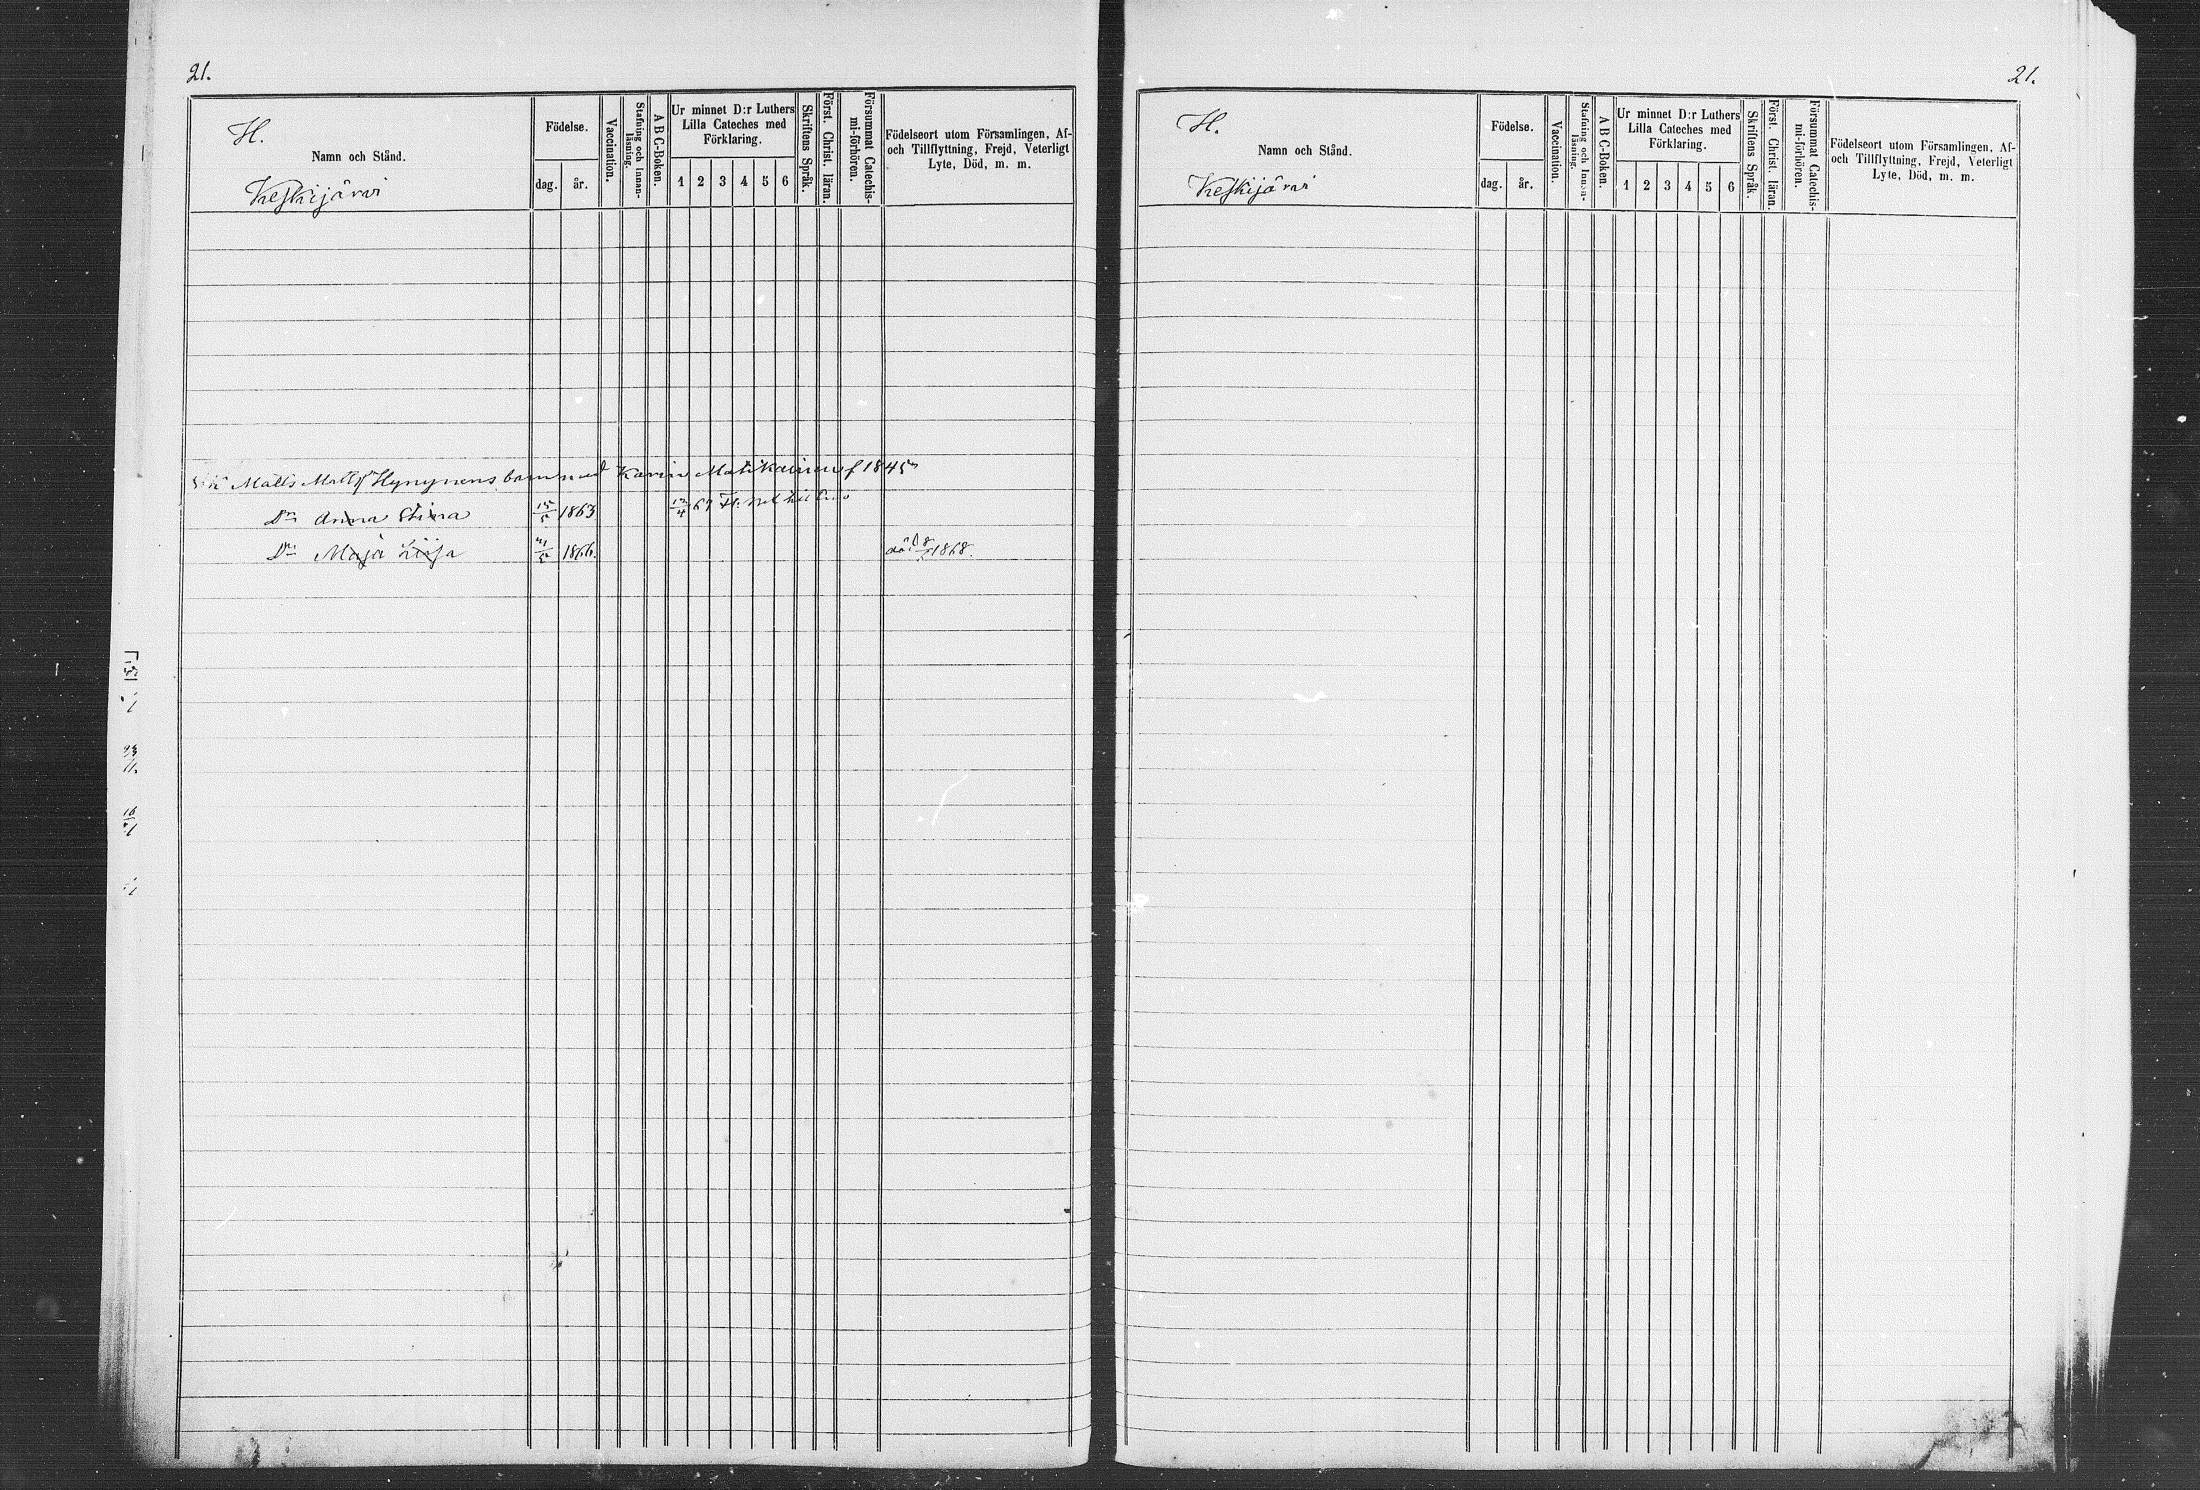 21.
H.
Namn och Stånd.
Keskijärvi
Födelse.
dag. år.
Vaccination.
Stafning och Innan-
läsning.
A B C-Boken.
Ur minnet D:r Luthers
Lilla Cateches med
Förklaring.
1 2 3 4 5 6
Skriftens Språk.
Först. Christ. läran.
Försummat Catechis-
mi-förhören.
Födelseort utom Församlingen, Af-
och Tillflyttning, Frejd, Veterligt
Lyte, Död, m. m.
Matts Matts Hynynens barn med Karin Matikainen f 1845
Dr Anna Stina 15/5 1863 12/4 69
Dr Maja Lisa 1866 död 1868.
21.
H.
Namn och Stånd.
Keskijärvi
Födelse.
dag. år.
Vaccination.
Stafning och Innan-
läsning.
A B C-Boken.
Ur minnet D:r Luthers
Lilla Cateches med
Förklaring.
1 2 3 4 5 6
Skriftens Språk.
Först. Christ. läran.
Försummat Catechis-
mi-förhören.
Födelseort utom Församlingen, Af-
och Tillflyttning, Frejd, Veterligt
Lyte, Död, m. m.